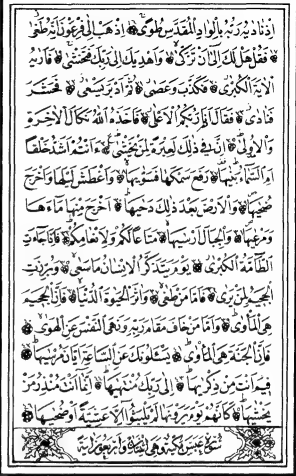 اِذْ نَادٰیهُ رَبُّهُ بِالْوَادِ الْمُقَدَّسِ طُوًی اِذْهَبْ اِلٰی فِرْعَوْنَ اِنَّهُ طَغٰی
فَقُلْ هَلْ لَكَ اِلٰٓی اَنْ تَزَكّٰی وَاَهْدِیَكَ اِلٰی رَبِّكَ فَتَخْشٰی فَاَرٰیهُ
الْاٰیَةَ الْكُبْرٰی فَكَذَّبَ وَعَصٰی ثُمَّ اَدْبَرَ یَسْعٰی فَحَشَرَ
فَنَادٰی فَقَالَ اَنَا۬ رَبُّكُمُ الْاَعْلٰی فَاَخَذَهُ اللّٰهُ نَكَالَ الْاٰخِرَةِ
وَالْاُو۫لٰی اِنَّ فٖی ذٰلِكَ لَعِبْرَةً لِمَنْ یَخْشٰی ءَاَنْتُمْ اَشَدُّ خَلْقًا
اَمِ السَّمَٓاءُ بَنٰیهَا رَفَعَ سَمْكَهَا فَسَوّٰیهَا وَاَغْطَشَ لَیْلَهَا وَاَخْرَجَ
ضُحٰیهَا وَالْاَرْضَ بَعْدَ ذٰلِكَ دَحٰیهَا اَخْرَجَ مِنْهَا مَٓاءَهَا
وَمَرْعٰیهَا وَالْجِبَالَ اَرْسٰیهَا مَتَاعًا لَكُمْ وَلِاَنْعَامِكُمْ فَاِذَا جَٓاءَتِ
الطَّٓامَّةُ الْكُبْرٰی یَوْمَ یَتَذَكَّرُ الْاِنْسَانُ مَا سَعٰی وَبُرِّزَتِ
الْجَحٖیمُ لِمَنْ یَرٰی فَاَمَّا مَنْ طَغٰی وَاٰثَرَ الْحَیٰوةَ الدُّنْیَا فَاِنَّ الْجَحٖیمَ
هِیَ الْمَاْوٰی وَاَمَّا مَنْ خَافَ مَقَامَ رَبِّهٖ وَنَهَی النَّفْسَ عَنِ الْهَوٰی
فَاِنَّ الْجَنَّةَ هِیَ الْمَاْوٰی یَسْـَٔلُونَكَ عَنِ السَّاعَةِ اَیَّانَ مُرْسٰیهَا
فٖیمَ اَنْتَ مِنْ ذِكْرٰیهَا اِلٰی رَبِّكَ مُنْتَهٰیهَا اِنَّمَٓا اَنْتَ مُنْذِرُ مَنْ
یَخْشٰیهَا كَاَنَّهُمْ یَوْمَ یَرَوْنَهَا لَمْ یَلْبَثُٓوا اِلَّا عَشِیَّةً اَوْ ضُحٰیهَا
سُورَةُ عَبَسَ مَكِّیَّةٌ وَهِیَ اثْنَتَانِ وَاَرْبَعُونَ اٰیَةً